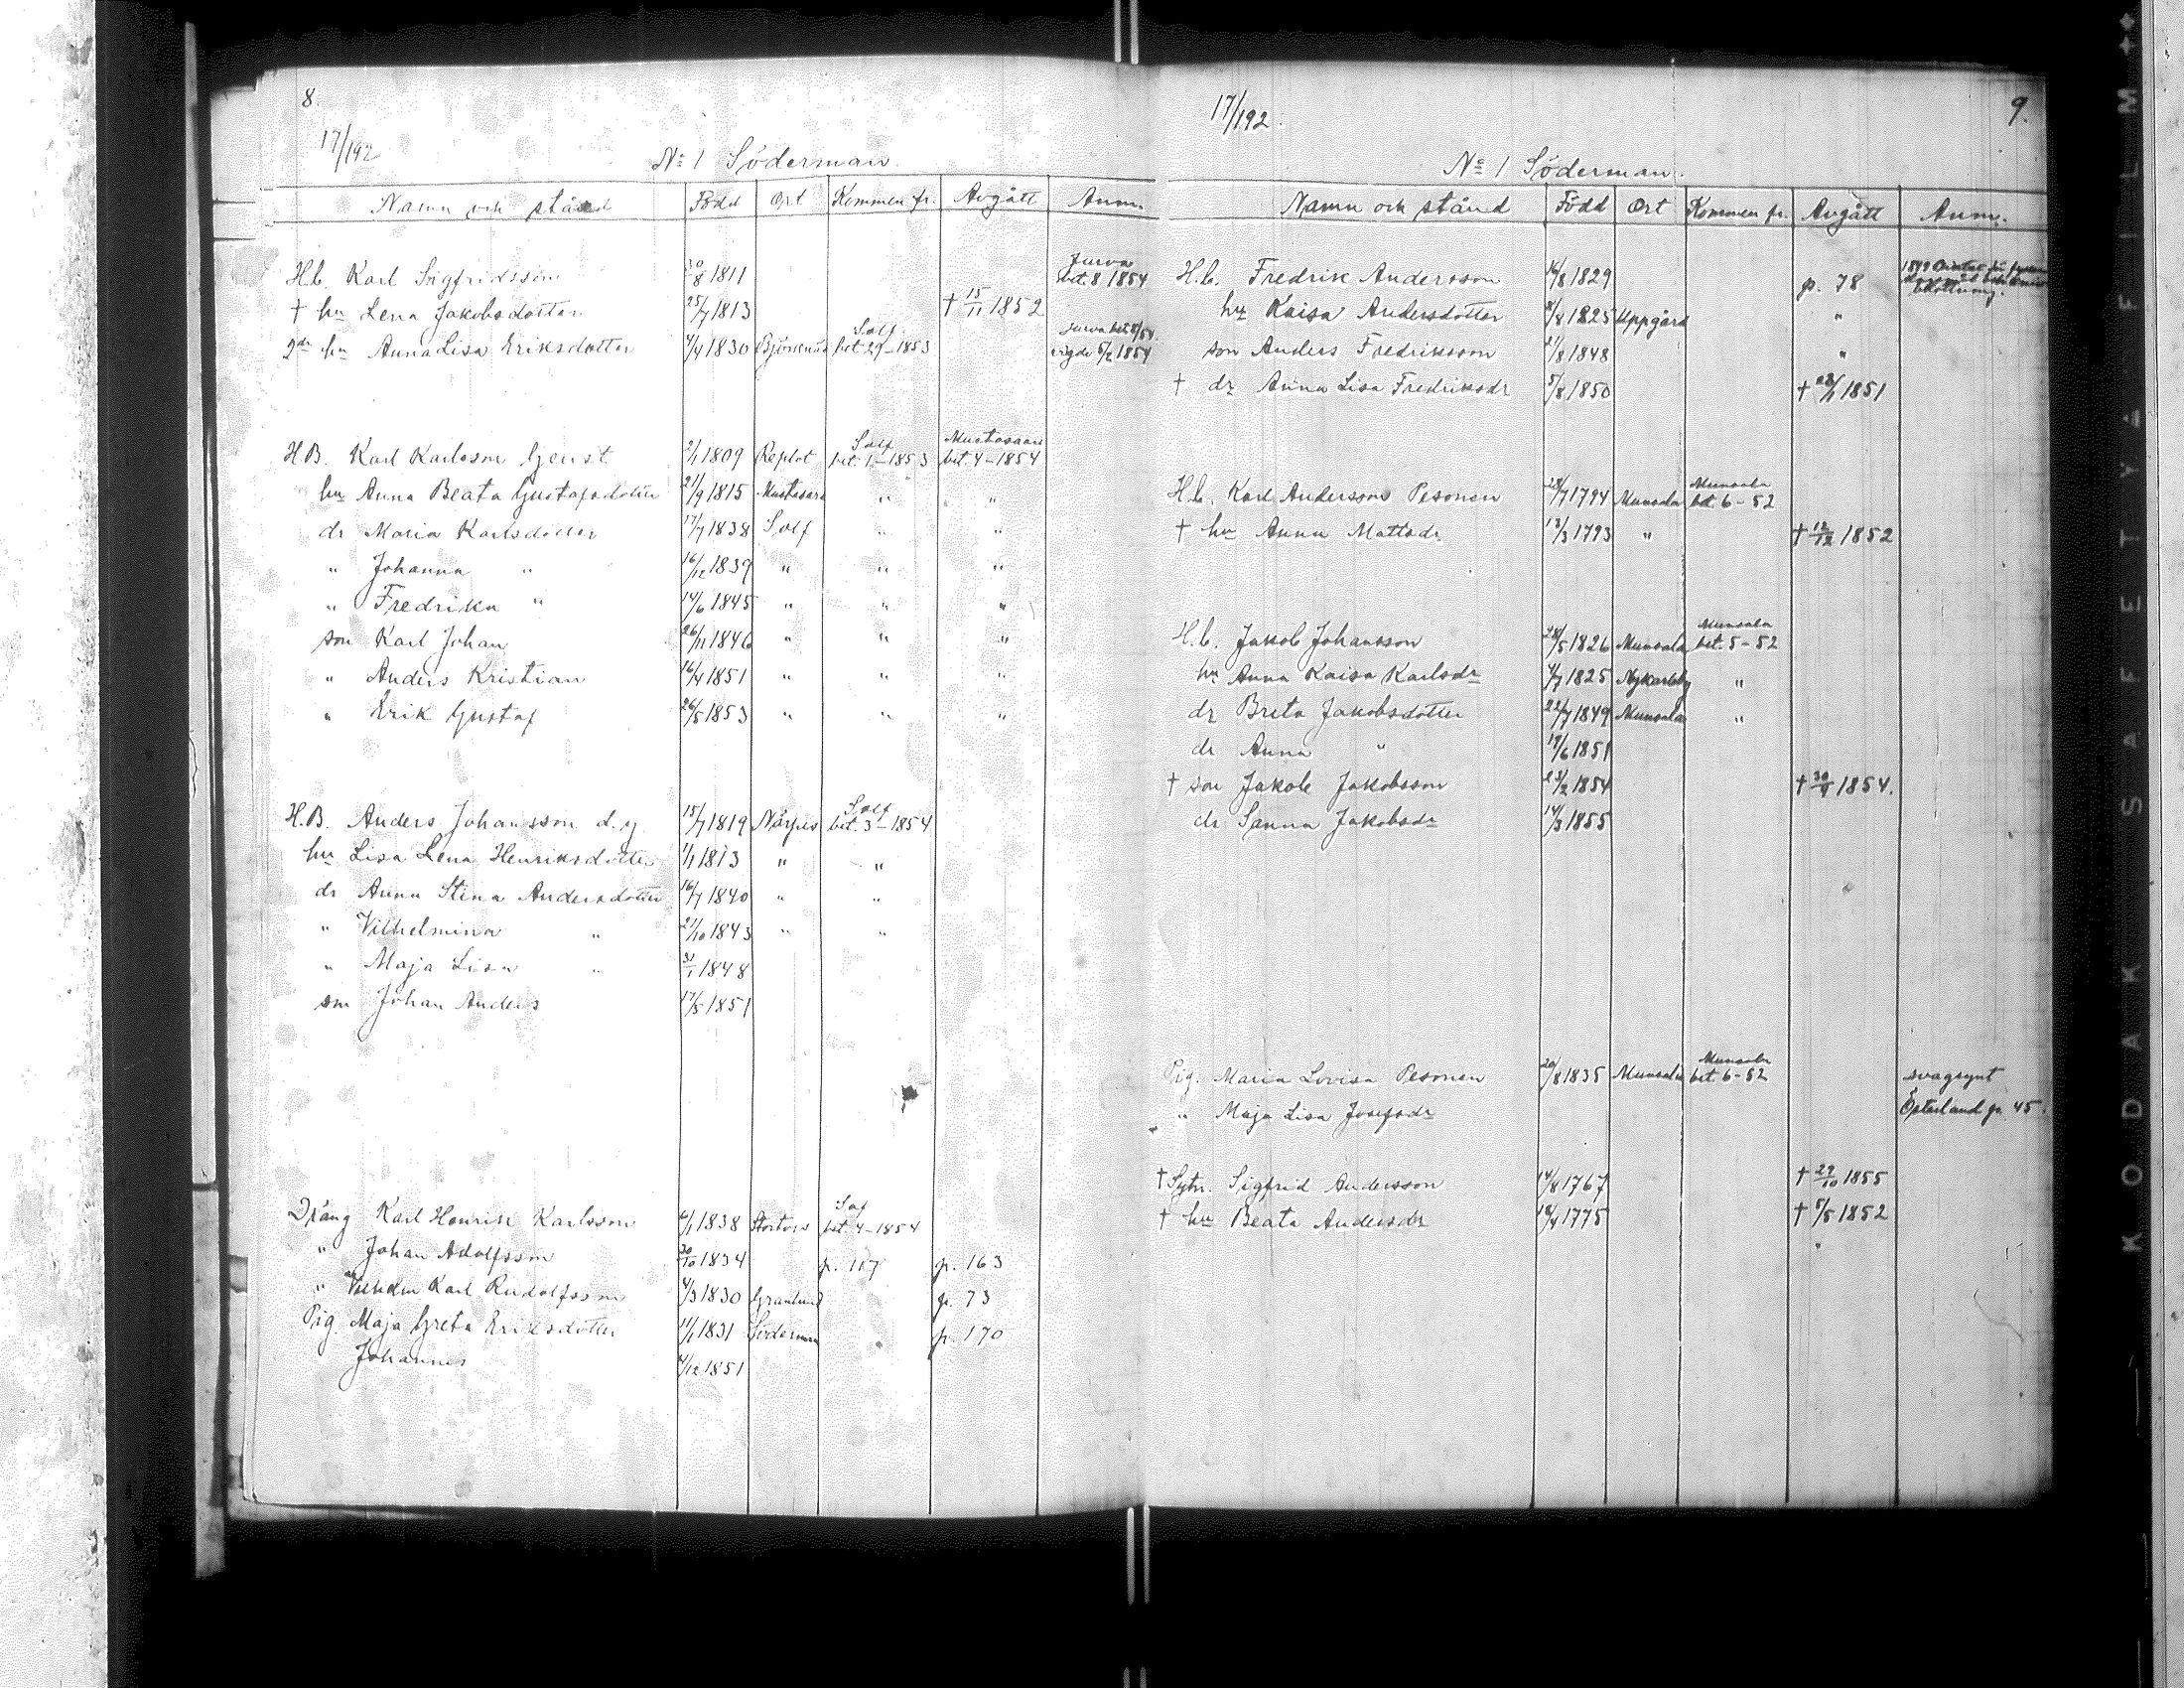 8
17/192
No 1 Söderman.
Namn och stånd Född Ort Kommen fr. Avgått Anm.
Jurva
H.b. Karl Sigfridsson 30/8 1811 bet. 8 1854
† hu Lena Jakobsdotter 25/7 1813 † 15/11 1852
Solf
2dr hu Anna Lisa Eriksdotter 4/4 1830 bet 29-1853 vigde 5/2 1854
Solf Mustasaari
H.B. Karl Karlsson Genst 2/1 1809 Replot bet. 1-1853 bet. 4-1854
hu Anna Beata Gustafsdotter 21/9 1815 " "
dr Maria Karlsdotter 17/7 1838 Solf " "
" Johanna " 16/12 1839 " " "
" Fredrika " 14/6 1845 " " "
son Karl Johan 26/11 1846 " " "
" Anders Kristian 16/4 1851 " " "
" Erik Gustaf 26/5 1853 " " "
Solf
H.B. Anders Johansson d.y. 15/7 1819 Närpes bet. 3-1854
hu Lisa Lena Henriksdotter 1/1 1813 " "
dr Anna Stina Andersdotter 16/7 1840 " "
" Vilhelmina " 21/10 1843 " "
" Maja Lisa " 31/1 1848
son Johan Anders 17/5 1851
Dräng Karl Henrik Karlsson 6/1 1838 bet 4-1854
" Johan Adolfsson 30/10 1834 p. 163
" Karl Rudolfsson 4/3 1830 Granlund p. 73
Pig. Maja Greta Eriksdotter 11/1 1831 Söderman p. 170
Johannes 4/12 1851
17/192 9.
No 1 Söderman.
Namn och stånd Född Ort Kommen fr. Avgått Anm.
H.b. Fredrik Andersson 16/8 1829 p. 78
hu Kaisa Andersdotter 8/8 1825 Uppgård "
son Anders Fredriksson 21/8 1848 "
† dr Anna Lisa Fredriksdr 5/8 1850 † 1851
Munsala
H.b. Karl Andersson Pesonen 28/7 1794 Munsala bet. 6-52
† hu Anna Mattsdr 13/3 1793 " † 12/12 1852
Munsala
H.b. Jakob Johansson 28/5 1826 Munsala bet. 5-52
hu Anna Kaisa Karlsdr 4/7 1825 Nykarleby "
dr Breta Jakobsdotter 22/7 1849 Munsala "
dr Anna " 19/6 1851
† son Jakob Jakobsson 23/2 1854 † 1854.
dr Sanna Jakobsdr 14/3 1855
Munsala
Pig. Maria Lovisa Pesonen 20/8 1835 Munsala bet. 6-52 svagsynt
" Maja Lisa Josefsdr p. 45.
† Sytn. Sigfrid Andersson 14/8 1767 † 29/10 1855
† hu Beata Andersdr 18/4 1775 † 5/5 1852
KODAK SAFETY FILM